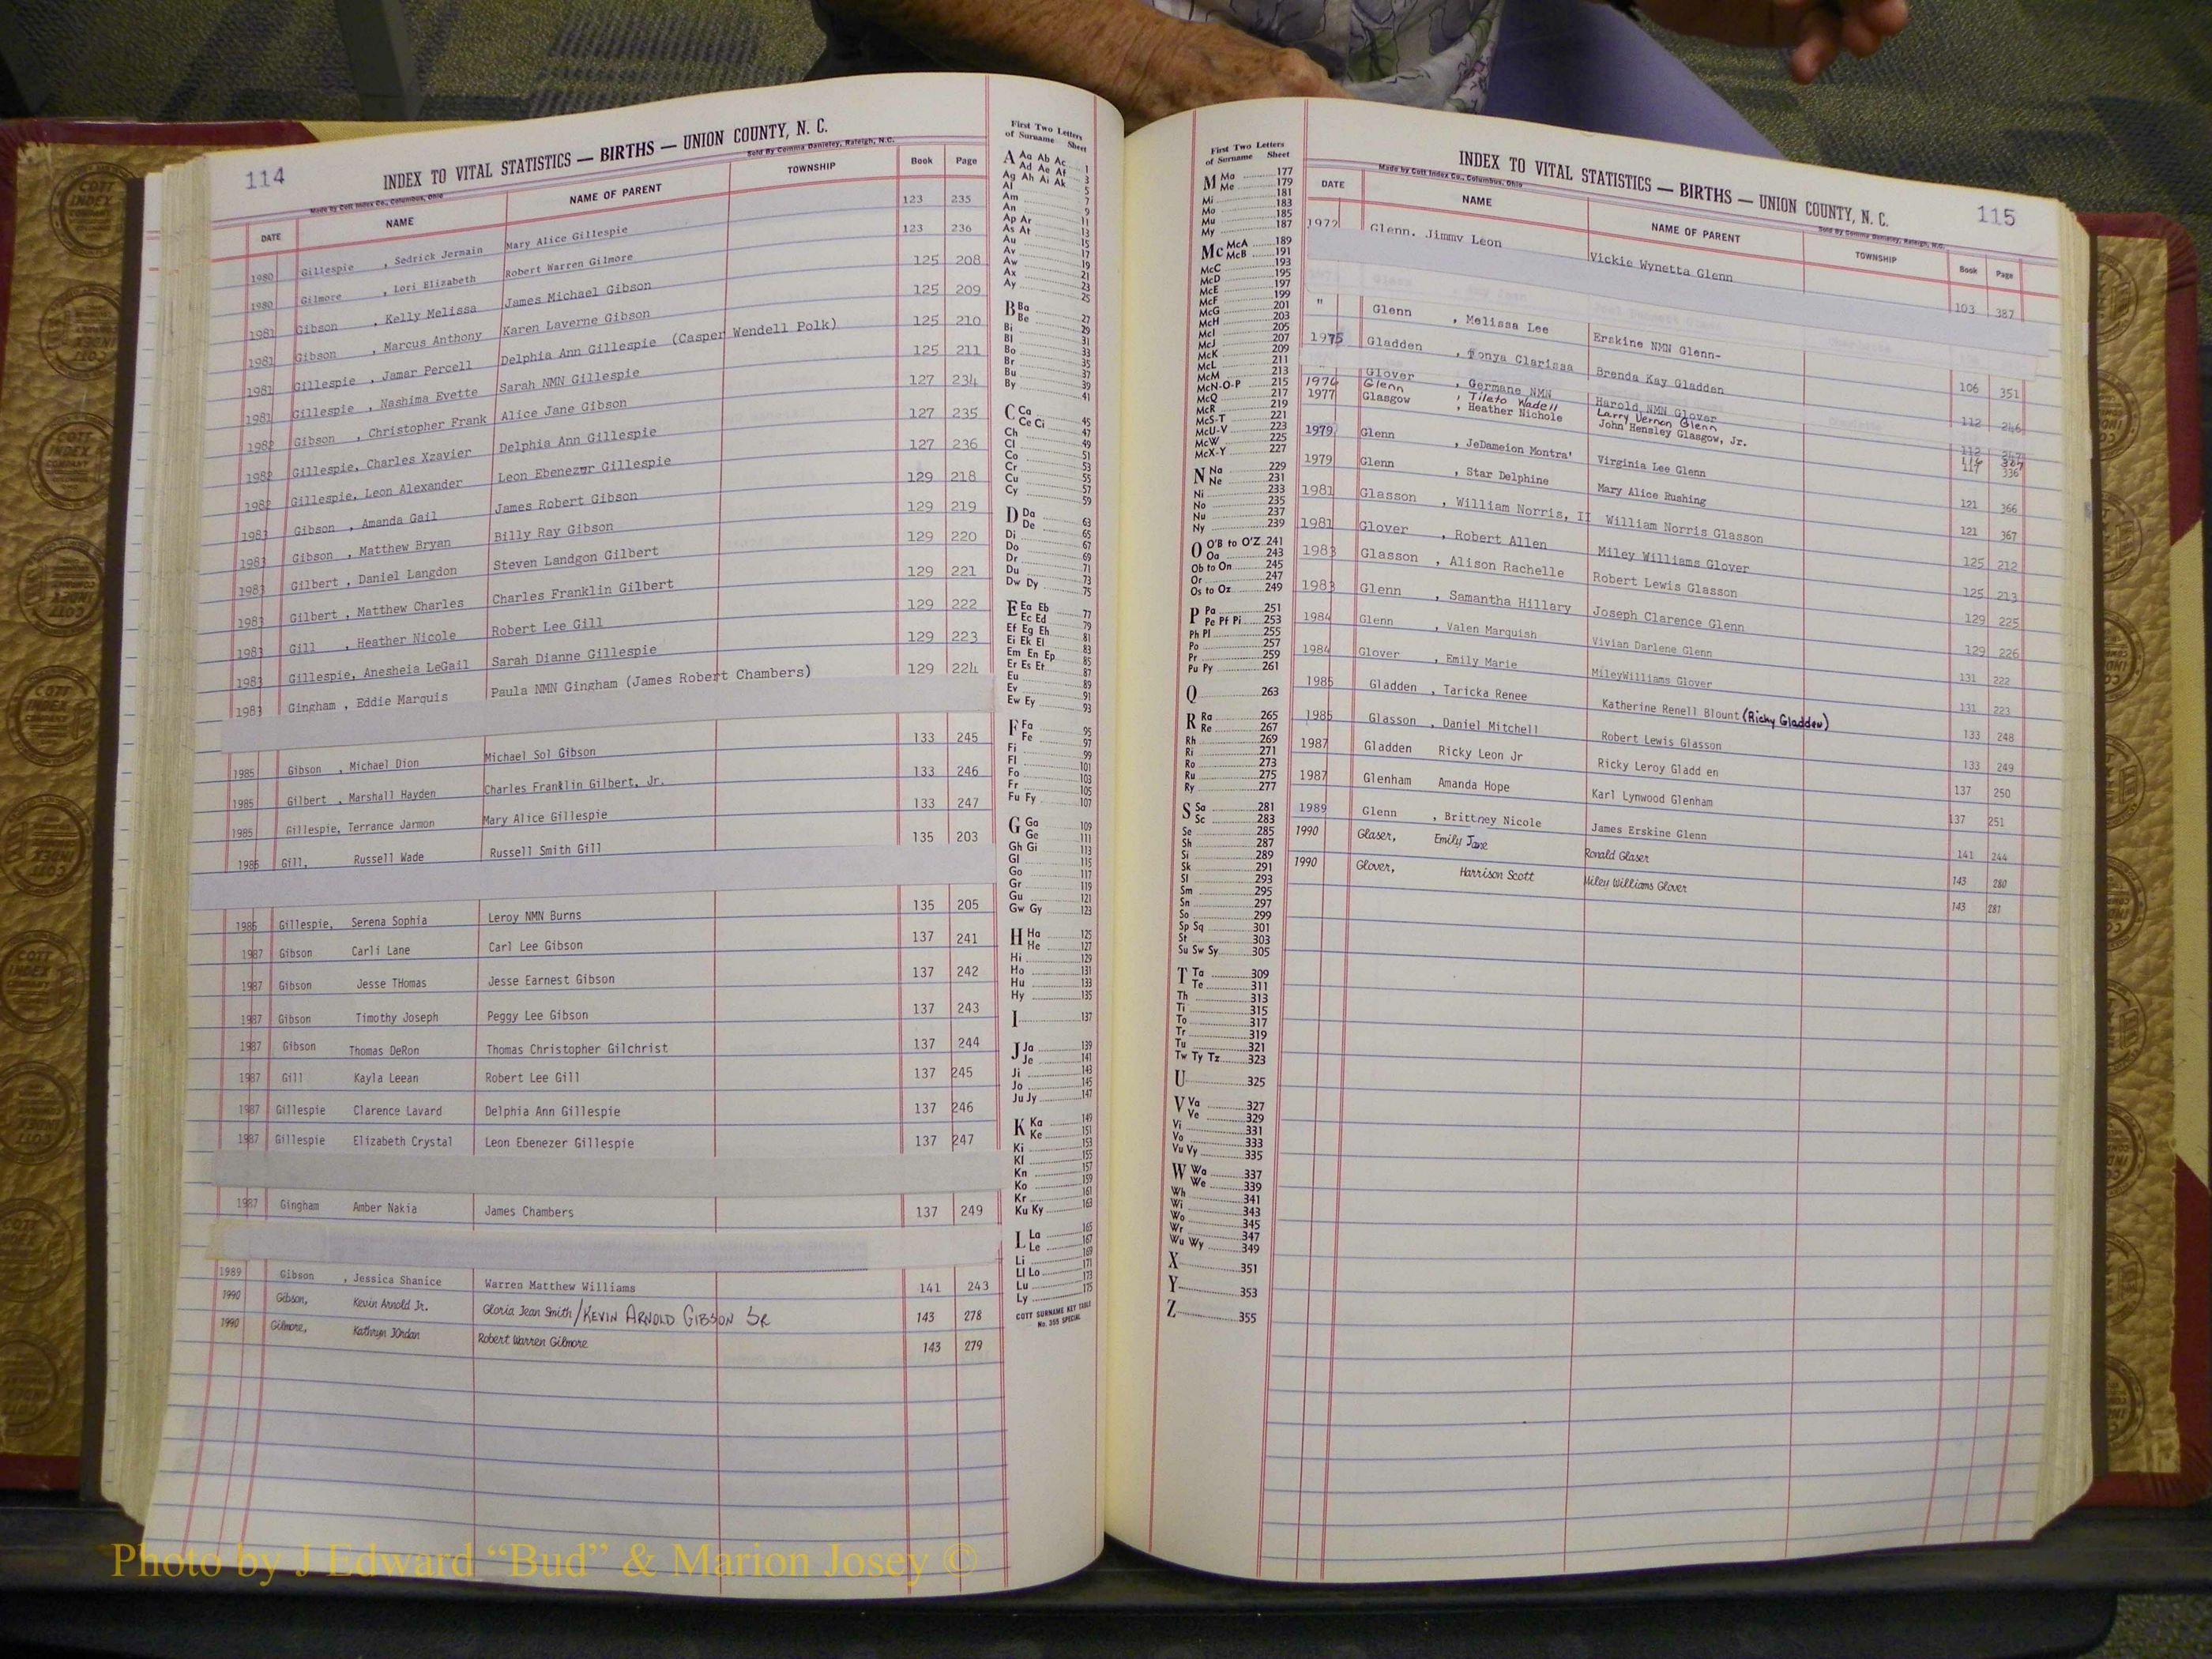 114
INDEX TO VITAL STATISTICS — BIRTHS — UNION COUNTY, N. C.
Made by Cott Index Co., Columbus, Ohio
Sold By Comma Danieley, Raleigh, N.C.
DATE NAME NAME OF PARENT TOWNSHIP Book Page
1980 Gillespie , Sedrick Jermain Mary Alice Gillespie 123 235
1980 Gilmore , Lori Elizabeth Robert Warren Gilmore 123 236
1981 Gibson , Kelly Melissa James Michael Gibson 125 208
1981 Gibson , Marcus Anthony Karen Laverne Gibson 125 209
1981 Gillespie , Jamar Percell Delphia Ann Gillespie (Casper Wendell Polk) 125 210
1981 Gillespie , Nashima Evette Sarah NMN Gillespie 125 211
1982 Gibson , Christopher Frank Alice Jane Gibson 127 234
1982 Gillespie, Charles Xzavier Delphia Ann Gillespie 127 235
1982 Gillespie, Leon Alexander Leon Ebenezer Gillespie 127 236
1983 Gibson , Amanda Gail James Robert Gibson 129 218
1983 Gibson , Matthew Bryan Billy Ray Gibson 129 219
1983 Gilbert , Daniel Langdon Steven Landgon Gilbert 129 220
1983 Gilbert , Matthew Charles Charles Franklin Gilbert 129 221
1983 Gill , Heather Nicole Robert Lee Gill 129 222
1983 Gillespie, Anesheia LeGail Sarah Dianne Gillespie 129 223
1983 Gingham , Eddie Marquis Paula NMN Gingham (James Robert Chambers) 129 224
1985 Gibson , Michael Dion Michael Sol Gibson 133 245
1985 Gilbert , Marshall Hayden Charles Franklin Gilbert, Jr. 133 246
1985 Gillespie, Terrance Jarmon Mary Alice Gillespie 133 247
1986 Gill, Russell Wade Russell Smith Gill 135 203
1986 Gillespie, Serena Sophia Leroy NMN Burns 135 205
1987 Gibson Carli Lane Carl Lee Gibson 137 241
1987 Gibson Jesse THomas Jesse Earnest Gibson 137 242
1987 Gibson Timothy Joseph Peggy Lee Gibson 137 243
1987 Gibson Thomas DeRon Thomas Christopher Gilchrist 137 244
1987 Gill Kayla Leean Robert Lee Gill 137 245
1987 Gillespie Clarence Lavard Delphia Ann Gillespie 137 246
1987 Gillespie Elizabeth Crystal Leon Ebenezer Gillespie 137 247
1987 Gingham Amber Nakia James Chambers 137 249
1989 Gibson , Jessica Shanice Warren Matthew Williams 141 243
1990 Gibson, Kevin Arnold Jr. Gloria Jean Smith/KEVIN ARNOLD GIBSON SR 143 278
1990 Gilmore, Kathryn JOrdan Robert Warren Gilmore 143 279
First Two Letters
of Surname Sheet
A Aa Ab Ac 1
Ad Ae Af 3
Ag Ah Ai Ak 5
Al 7
Am 9
An 11
Ap Ar 13
As At 15
Au 17
Av 19
Aw 21
Ax 23
Ay 25
B Ba 27
Be 29
Bi 31
Bl 33
Bo 35
Br 37
Bu 39
By 41
C Ca 45
Ce Ci 47
Ch 49
Cl 51
Co 53
Cr 55
Cu 57
Cy 59
D Da 63
De 65
Di 67
Do 69
Dr 71
Du 73
Dw Dy 75
E Ea Eb 77
Ec Ed 79
Ef Eg Eh 81
Ei Ek El 83
Em En Ep 85
Er Es Et 87
Eu 89
Ev 91
Ew Ey 93
F Fa 95
Fe 97
Fi 99
Fl 101
Fo 103
Fr 105
Fu Fy 107
G Ga 109
Ge 111
Gh Gi 113
Gl 115
Go 117
Gr 119
Gu 121
Gw Gy 123
H Ha 125
He 127
Hi 129
Ho 131
Hu 133
Hy 135
I 137
J Ja 139
Je 141
Ji 143
Jo 145
Ju Jy 147
K Ka 149
Ke 151
Ki 153
Kl 155
Kn 157
Ko 159
Kr 161
Ku Ky 163
L La 165
Le 167
Li 169
Ll Lo 171
Lu 173
Ly 175
COTT SURNAME KEY TABLE
No. 355 SPECIAL
First Two Letters
of Surname Sheet
M Ma 177
Me 179
Mi 181
Mo 183
Mu 185
My 187
Mc McA 189
McB 191
McC 193
McD 195
McE 197
McF 199
McG 201
McH 203
McI 205
McJ 207
McK 209
McL 211
McM 213
McN-O-P 215
McQ 217
McR 219
McS-T 221
McU-V 223
McW 225
McX-Y 227
N Na 229
Ne 231
Ni 233
No 235
Nu 237
Ny 239
O O'B to O'Z 241
Oa 243
Ob to On 245
Or 247
Os to Oz 249
P Pa 251
Pe Pf Pi 253
Ph Pl 255
Po 257
Pr 259
Pu Py 261
Q 263
R Ra 265
Re 267
Rh 269
Ri 271
Ro 273
Ru 275
Ry 277
S Sa 281
Sc 283
Se 285
Sh 287
Si 289
Sk 291
Sl 293
Sm 295
Sn 297
So 299
Sp Sq 301
St 303
Su Sw Sy 305
T Ta 309
Te 311
Th 313
Ti 315
To 317
Tr 319
Tu 321
Tw Ty Tz 323
U 325
V Va 327
Ve 329
Vi 331
Vo 333
Vu Vy 335
W Wa 337
We 339
Wh 341
Wi 343
Wo 345
Wr 347
Wu Wy 349
X 351
Y 353
Z 355
INDEX TO VITAL STATISTICS — BIRTHS — UNION COUNTY, N. C.
115
Made by Cott Index Co., Columbus, Ohio
Sold By Comma Danieley, Raleigh, N.C.
DATE NAME NAME OF PARENT TOWNSHIP Book Page
1972 Glenn, Jimmy Leon Vickie Wynetta Glenn 103 387
" Glenn , Melissa Lee Erskine NMN Glenn- 106 351
1975 Gladden , Tonya Clarissa Brenda Kay Gladden 112 246
Glover , Germane NMN Harold NMN Glover 112
1976 Glenn , Tilato Wadell Larry Vernon Glenn
1977 Glasgow , Heather Nichole John Hensley Glasgow, Jr. 117 336
1979 Glenn , JeDameion Montra' Virginia Lee Glenn 121 366
1979 Glenn , Star Delphine Mary Alice Rushing 121 367
1981 Glasson , William Norris, II William Norris Glasson 125 212
1981 Glover , Robert Allen Miley Williams Glover 125 213
1983 Glasson , Alison Rachelle Robert Lewis Glasson 129 225
1983 Glenn , Samantha Hillary Joseph Clarence Glenn 129 226
1984 Glenn , Valen Marquish Vivian Darlene Glenn 131 222
1984 Glover , Emily Marie MileyWilliams Glover 131 223
1985 Gladden , Taricka Renee Katherine Renell Blount (Ricky Gladden) 133 248
1985 Glasson , Daniel Mitchell Robert Lewis Glasson 133 249
1987 Gladden Ricky Leon Jr Ricky Leroy Gladd en 137 250
1987 Glenham Amanda Hope Karl Lynwood Glenham 137 251
1989 Glenn , Brittney Nicole James Erskine Glenn 141 244
1990 Glaser, Emily Jane Ronald Glaser 143 280
1990 Glover, Harrison Scott Miley Williams Glover 143 281
Photo by J Edward “Bud” & Marion Josey ©